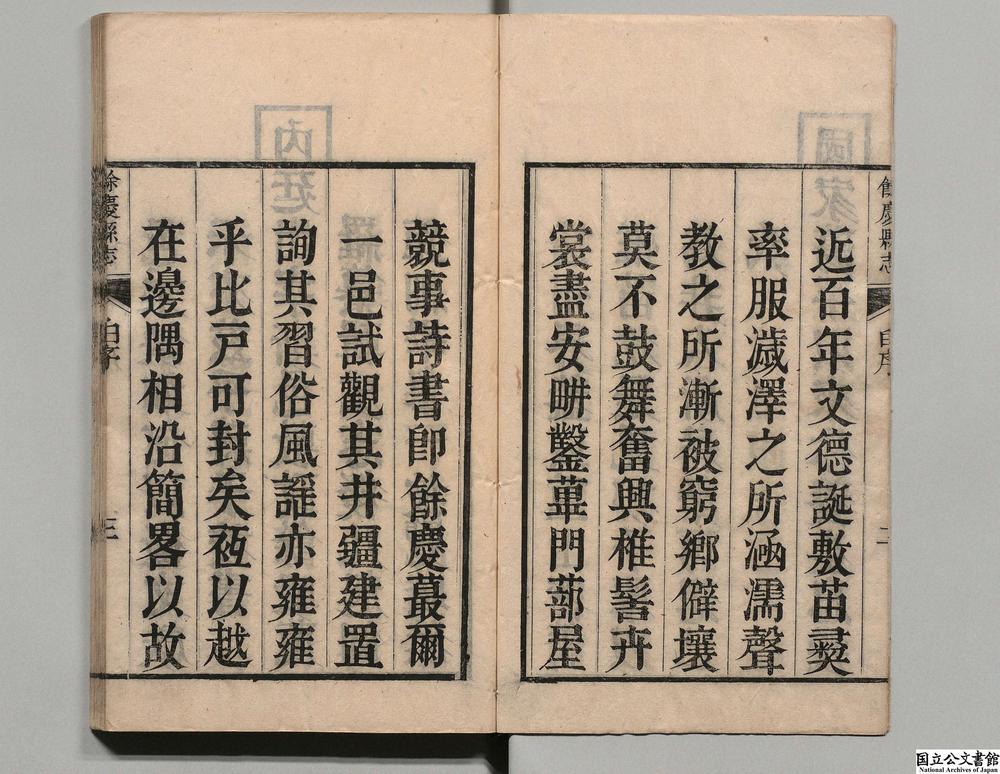 餘慶縣志 自序 二
近百年文德誕敷苗㸑
率服濊澤之所涵濡聲
教之所漸被窮鄉僻壤
莫不鼓舞奮興椎髻卉
裳盡安畊鑿蓽門蔀屋
競事詩書卽餘慶蕞爾
一邑試觀其井疆建置
詢其習俗風謡亦雍雍
乎比戸可封矣秪以越
在邊隅相沿簡畧以故
餘慶縣志 自序 三
国立公文書館
National Archives of Japan